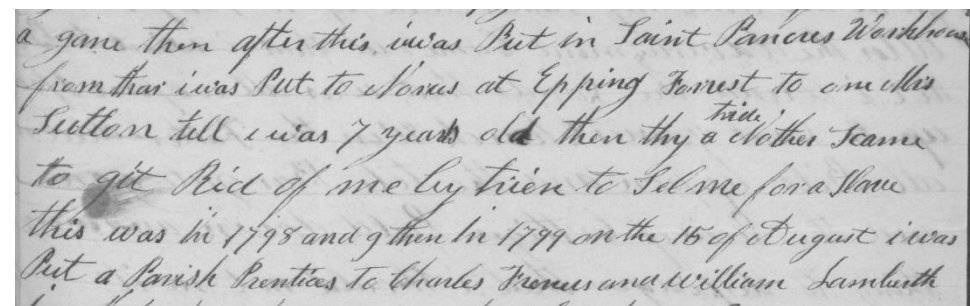 a gane then after this iwas Put in Saint Pancres Workhouse
from thar i was Put to Norus at Epping Forrest to one Mis
Sutton tell i was 7 years old then thy tride a Nother Scame
to git Rid of me by trien to Sel me for a Slave
this was in 1798 and 9 then In 1799 on the 15 of August i was
Put a Parish Prentices to Charles and William Lamberth